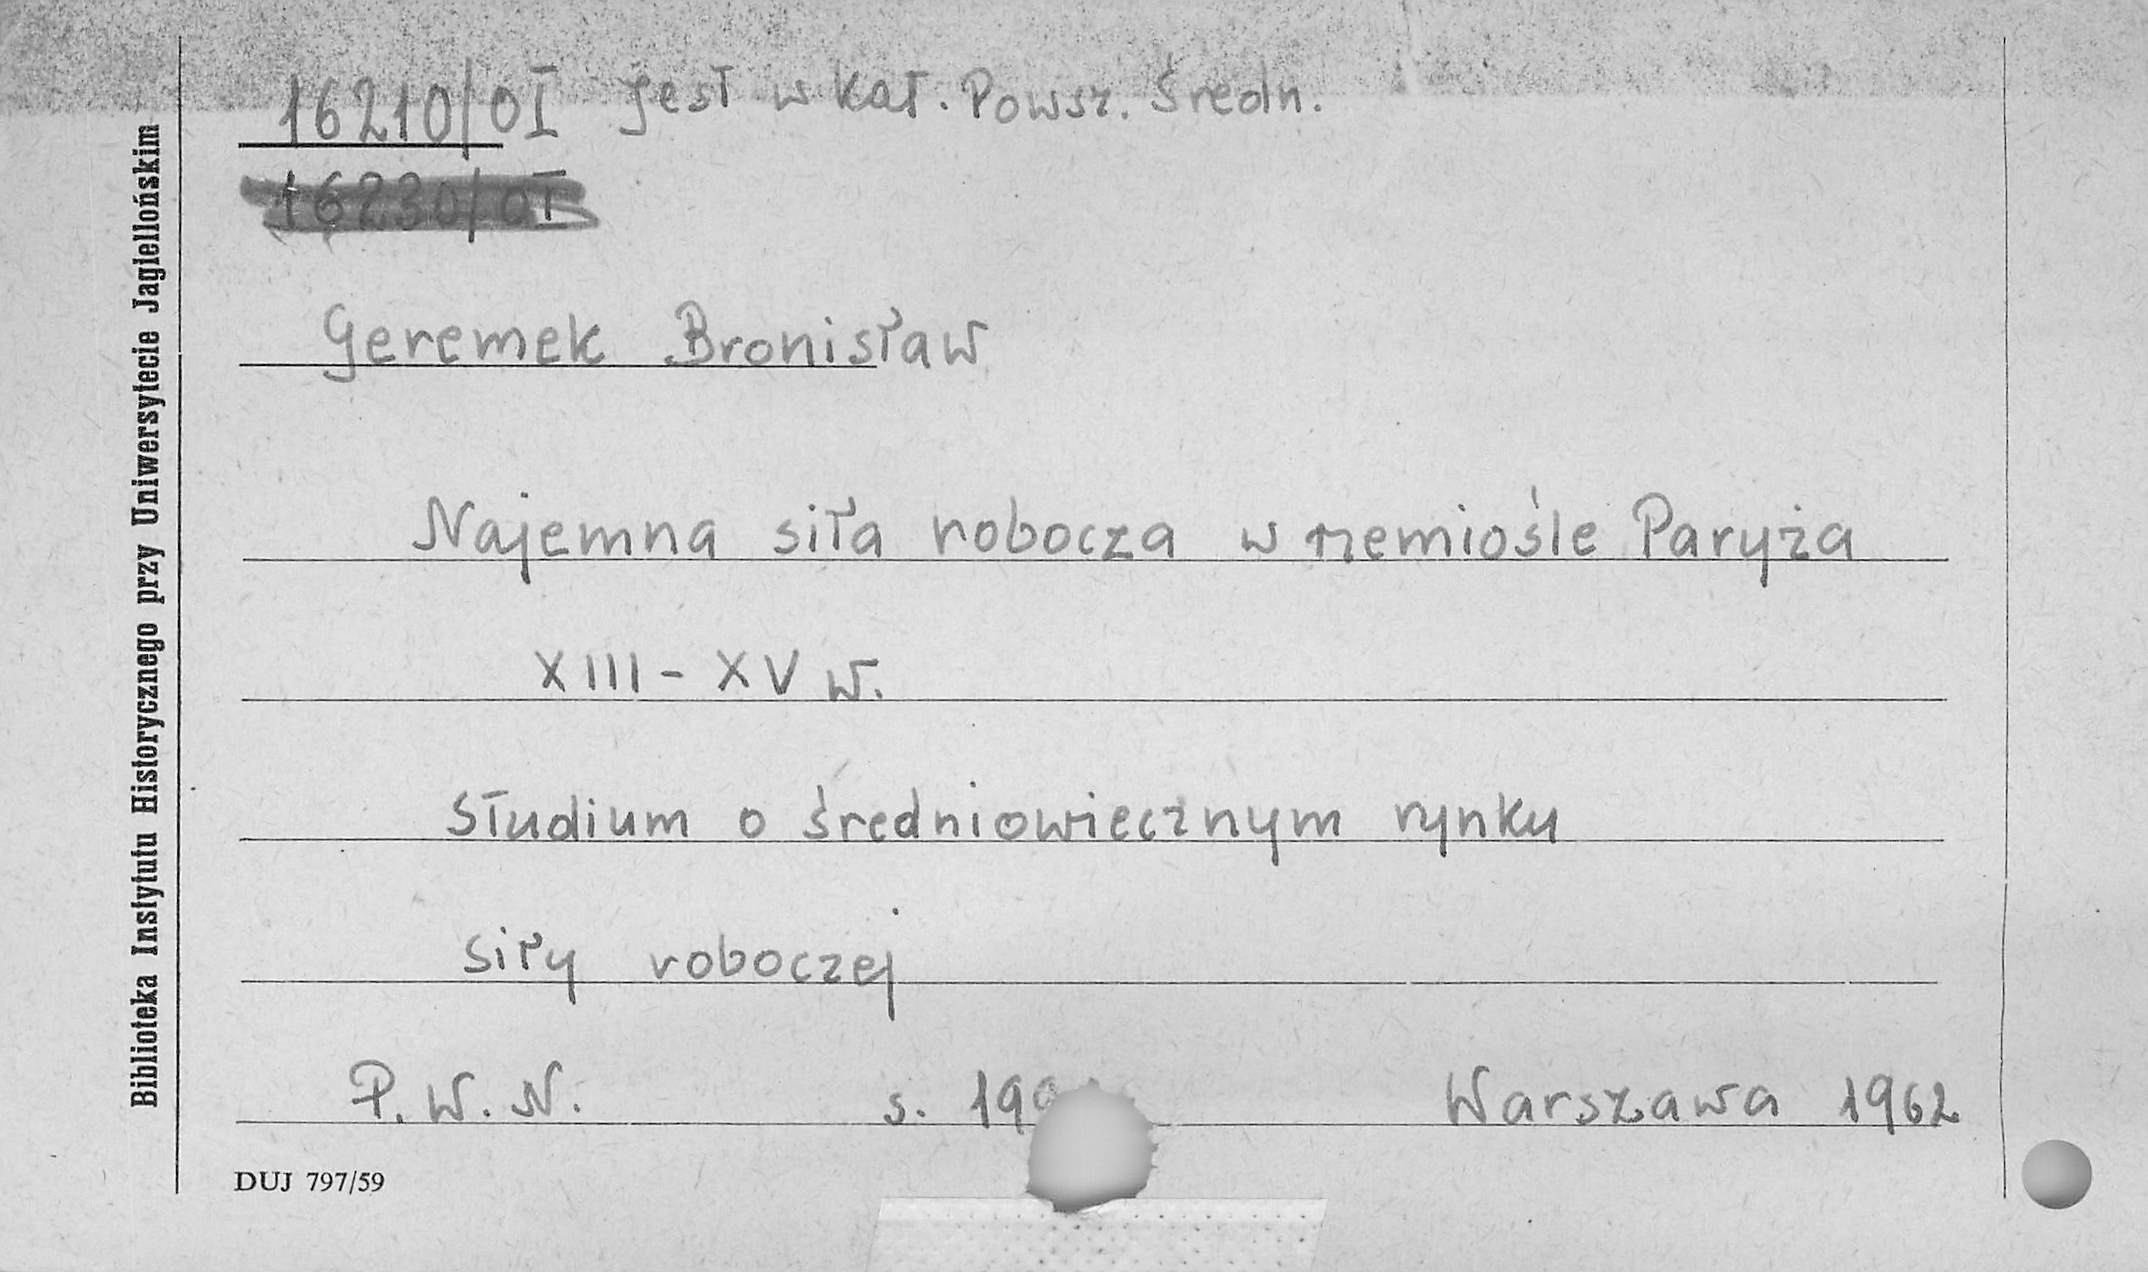 16210/OI Jest w Kat. Powsz. Średn.
16230/OI
Geremek Bronisław
Najemna siła robocza w rzemiośle Paryża
XIII - XV w.
Studium o średniowiecznym rynku
siły roboczej
P. W. N. s. Warszawa 1962
DUJ 797/59
Biblioteka Instytutu Historycznego przy Uniwersytecie Jagiellońskim